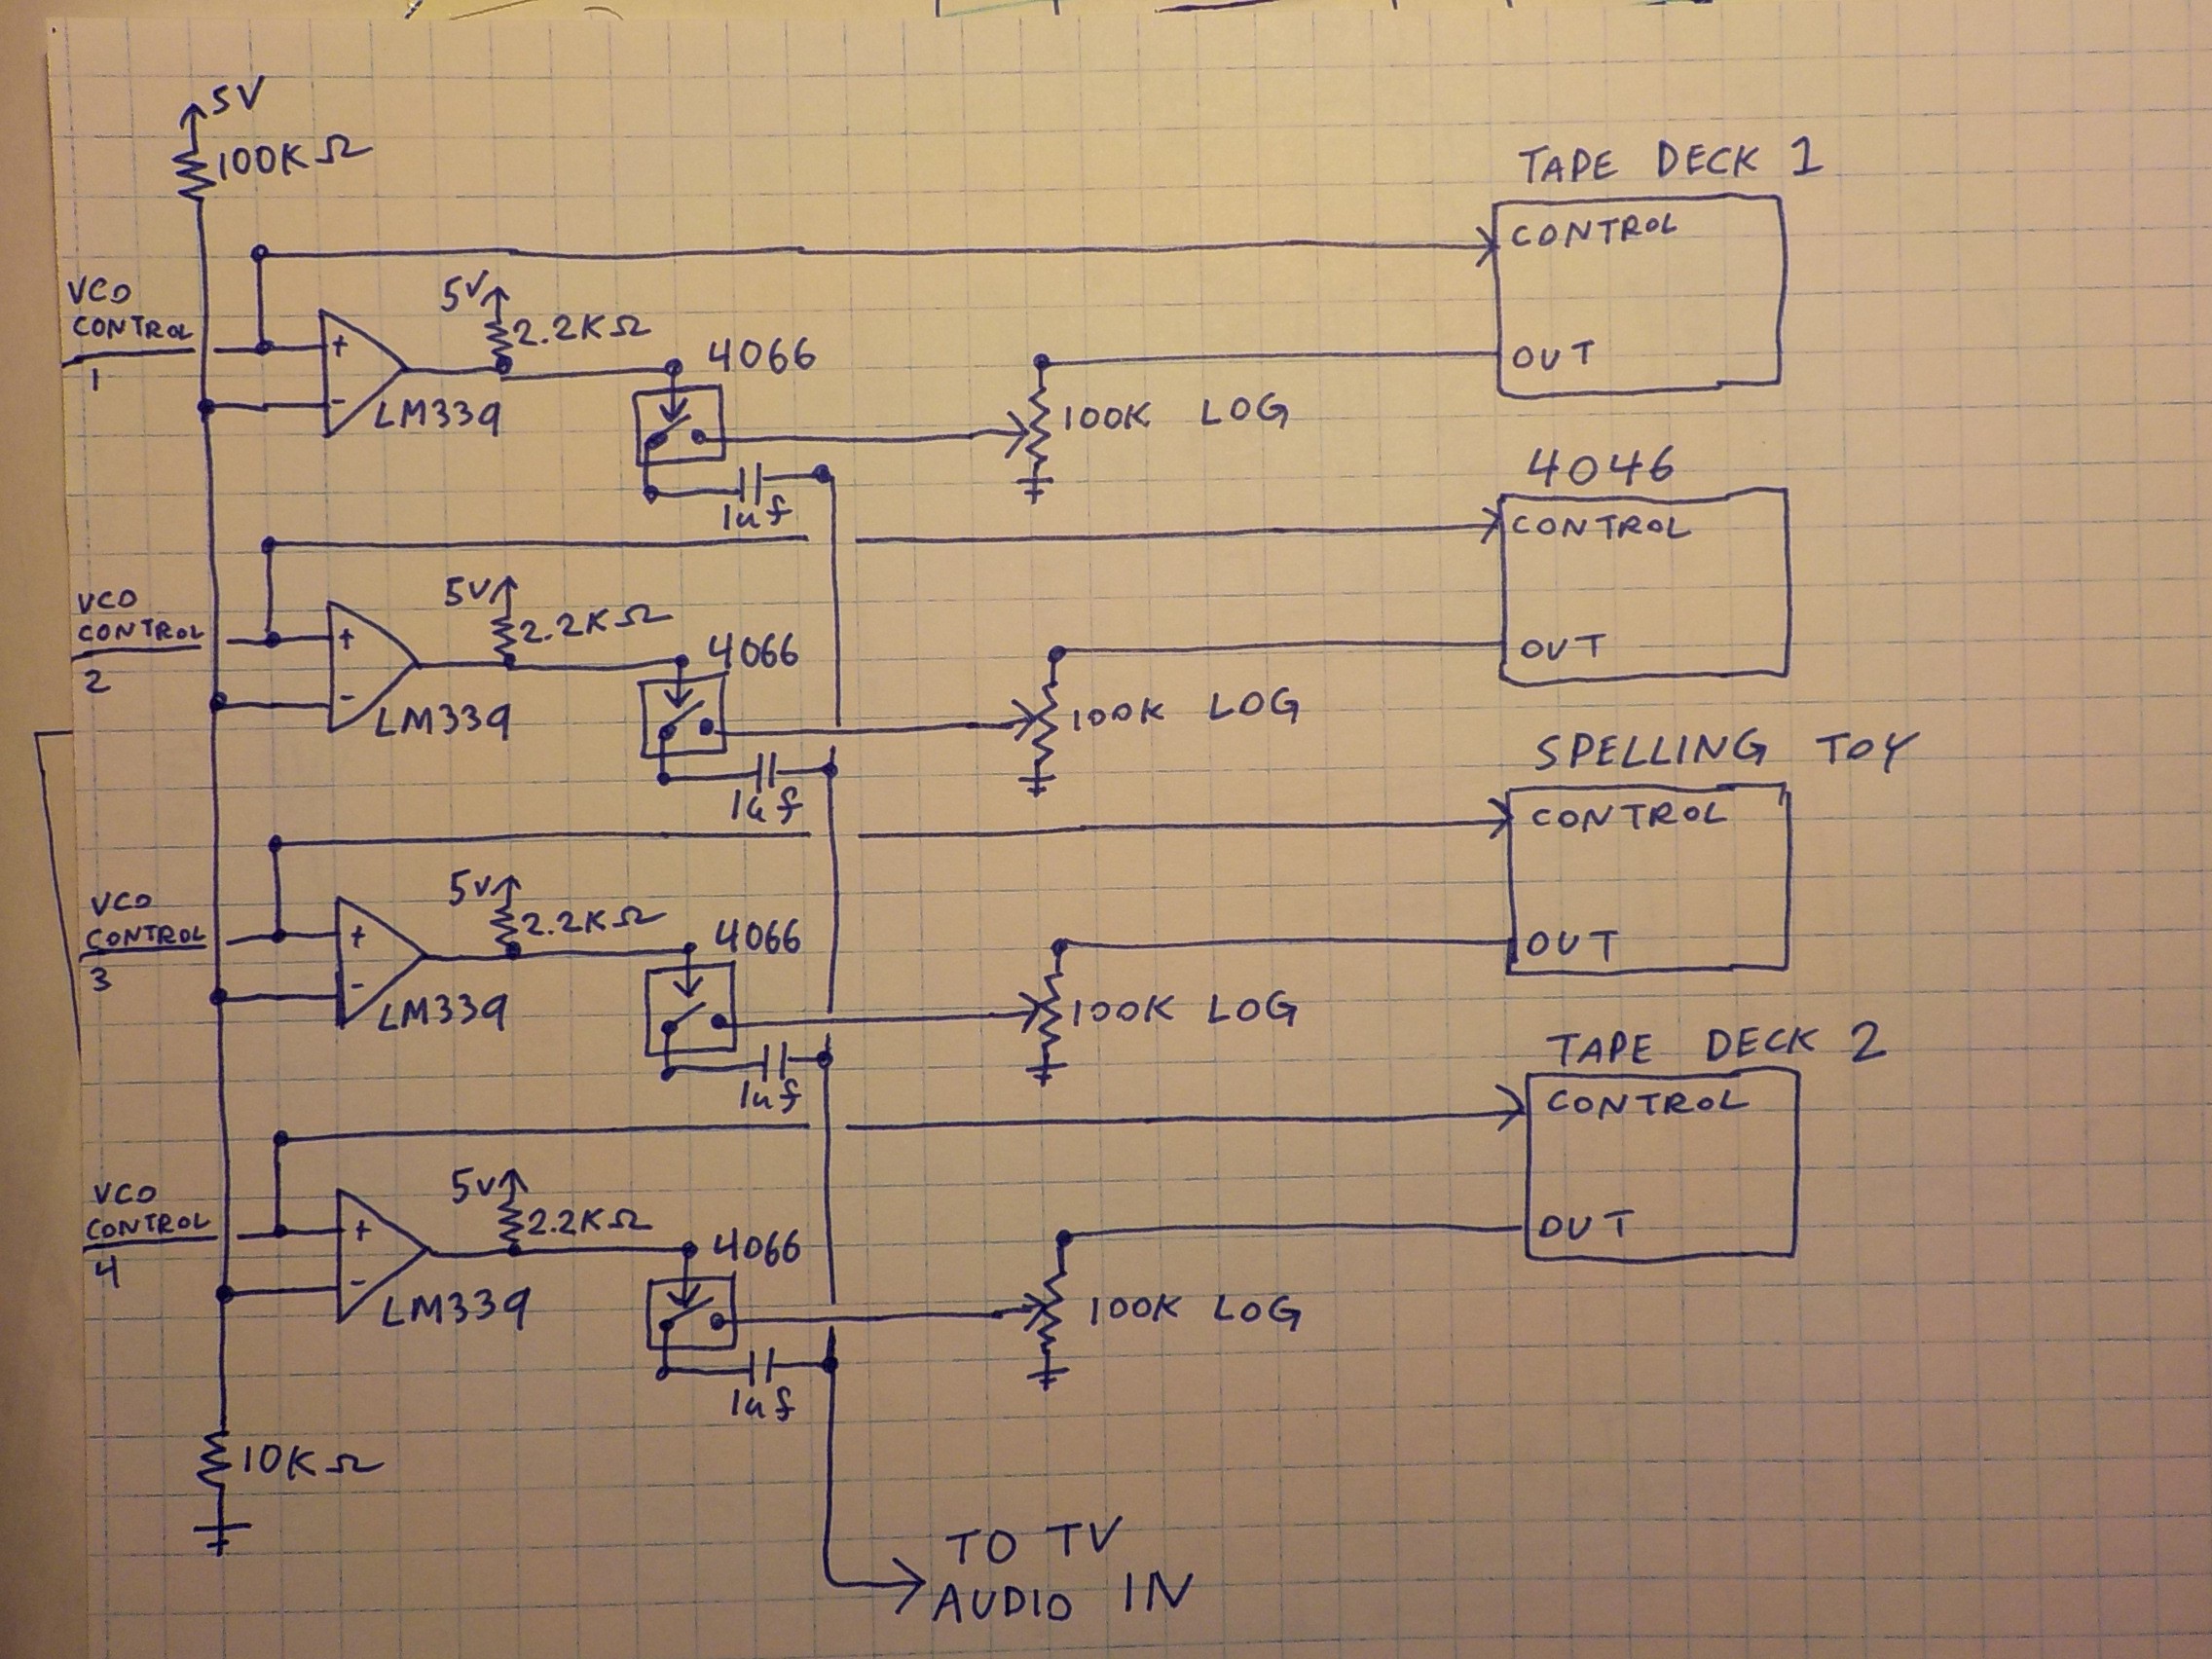 5V
100KΩ
TAPE DECK 1
CONTROL
VCO
CONTROL
1
5V
2.2KΩ
4066
+
-
LM339
OUT
100K LOG
1uf
4046
CONTROL
VCO
CONTROL
2
5V
2.2KΩ
4066
+
-
LM339
OUT
100K LOG
1uf
SPELLING TOY
CONTROL
VCO
CONTROL
3
5V
2.2KΩ
4066
+
-
LM339
OUT
100K LOG
1uf
TAPE DECK 2
CONTROL
VCO
CONTROL
4
5V
2.2KΩ
4066
+
-
LM339
OUT
100K LOG
1uf
10KΩ
TO TV
AUDIO IN